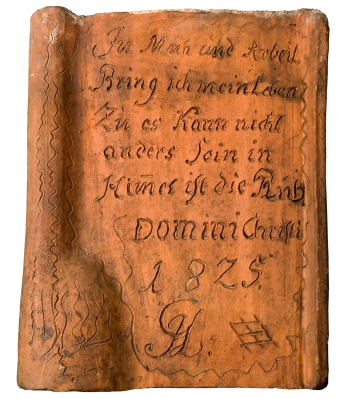 In Müh und Arbeit
Bring ich mein Leben
Zu es Kann nicht
anders Sein in
Him̄el ist die Ruh
DOMINI Christi
1825.